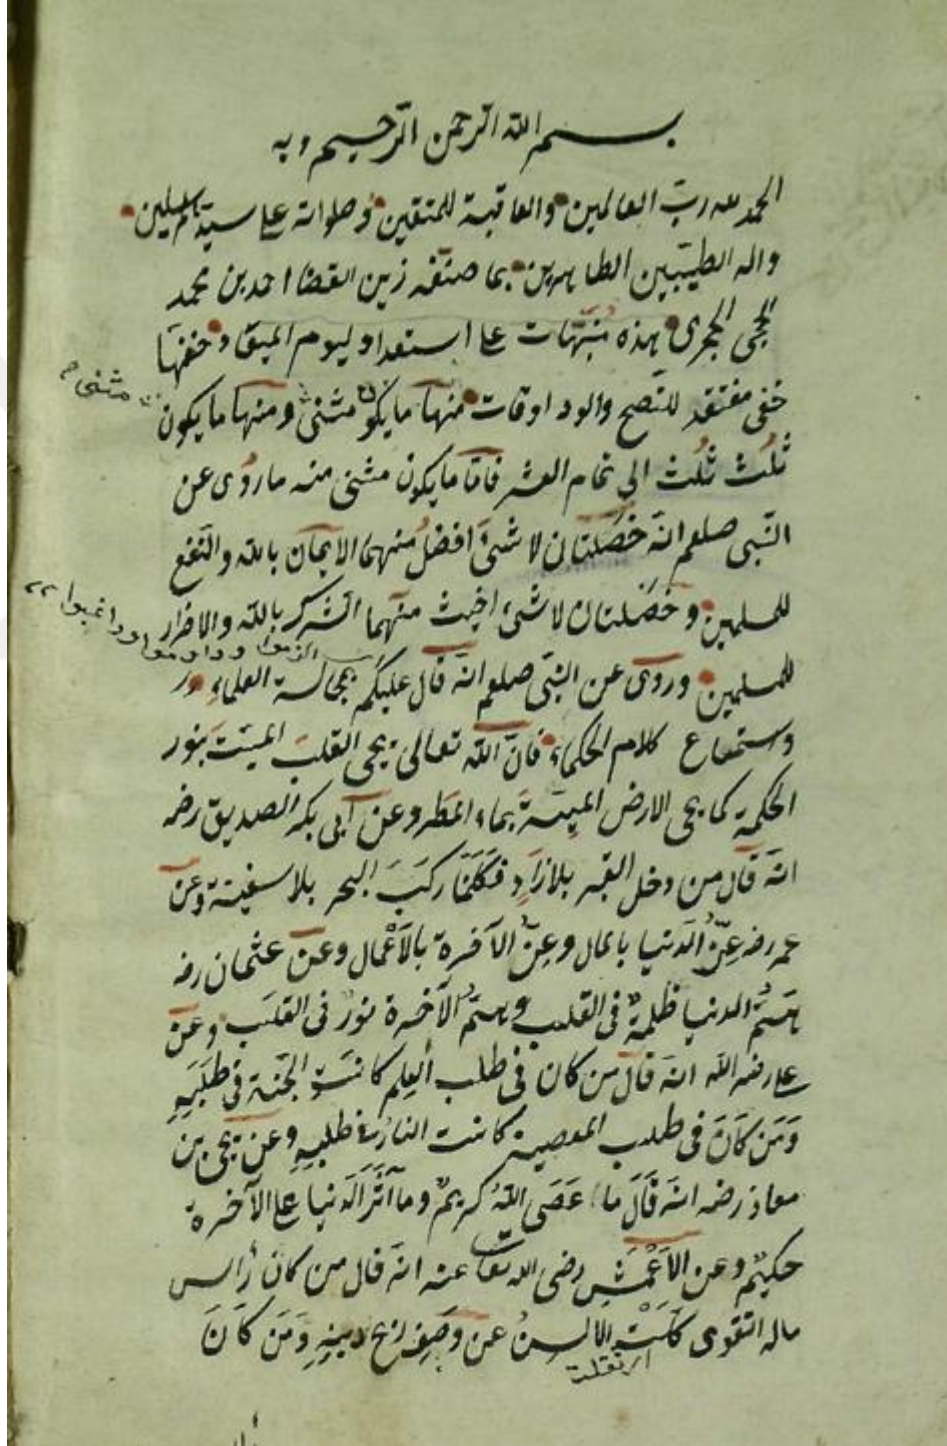 بسم الله الرحمن الرحيم وبه
الحمد لله رب العالمين والعاقبة للمتقين وصلواته على سيد المرسلين
واله الطيبين الطاهرين بما صنفه زين القضا احمد بن محمد
الحجى الحجرى هذه منبهات على استعداد ليوم الميعاد
للنصح والوداد اوقات منها ما يكون مثنى ومنها ما يكون
مثنى
ثلث ثلث الى تمام العشر فاما ما يكون مثنى منه ما روى عن
النبى صلعم انه خصلتان لا شئ افضل منهما الايمان بالله والنفع
للمسلمين وخصلتان لا شئ اخبث منهما الشرك بالله والاضرار
الزموا وداوموا وارغبوا
للمسلمين وروى عن النبى صلعم انه قال عليكم بمجالسة العلماء
واستماع كلام الحكماء فان الله تعالى يحى القلب الميت بنور
الحكمة كما يحى الارض الميتة بماء المطر وعن ابى بكر الصديق رضه
انه قال من دخل القبر بلا زاد فكانما ركب البحر بلا سفينة وعن
عمر رضه عز الدنيا بالمال وعز الآخرة بالأعمال وعن عثمان رضه
هم الدنيا ظلمة فى القلب وهم الآخرة نور فى القلب وعن
على رضه الله انه قال من كان فى طلب العلم كانت الجنة فى طلبه
ومن كان فى طلب المعصية كانت النار فى طلبه وعن يحى بن
معاذ رضه انه قال ما عصى الله كريم وما آثر الدنيا على الآخرة
حكيم وعن الأعمش رضى الله تعا عنه انه قال من كان رأس
ماله التقوى كلت الالسن عن وصف ربح دينه ومن كان